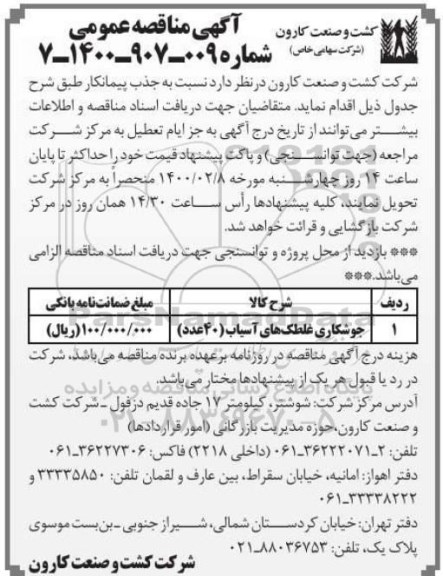 کشت و صنعت کارون
(شرکت سهامی خاص)
آگهی مناقصه عمومی
شماره ۰۰۹-۹۰۷-۱۴۰۰-۷
شرکت کشت و صنعت کارون در نظر دارد نسبت به جذب پیمانکار طبق شرح
جدول ذیل اقدام نماید. متقاضیان جهت دریافت اسناد مناقصه و اطلاعات
بیشتر می‌توانند از تاریخ درج آگهی به جز ایام تعطیل به مرکز شرکت
مراجعه (جهت توانسنجی) و پاکت پیشنهاد قیمت خود را حداکثر تا پایان
ساعت ۱۴ روز چهارشنبه مورخه ۱۴۰۰/۰۲/۸ منحصراً به مرکز شرکت
تحویل نمایند، کلیه پیشنهادها رأس ساعت ۱۴/۳۰ همان روز در مرکز
شرکت بازگشایی و قرائت خواهد شد.
*** بازدید از محل پروژه و توانسنجی جهت دریافت اسناد مناقصه الزامی
می‌باشد.***
ردیف شرح کالا مبلغ ضمانت‌نامه بانکی
۱ جوشکاری غلطک‌های آسیاب (۴۰عدد) ۱۰۰/۰۰۰/۰۰۰(ریال)
هزینه درج آگهی مناقصه در روزنامه برعهده برنده مناقصه می‌باشد، شرکت
در رد یا قبول هر یک از پیشنهادها مختار می‌باشد.
آدرس مرکز شرکت: شوشتر، کیلومتر ۱۷ جاده قدیم دزفول -شرکت کشت
و صنعت کارون،حوزه مدیریت بازرگانی (امور قراردادها)
تلفن: ۲-۳۶۲۲۲۰۷۱-۰۶۱ (داخلی ۲۲۱۸) فاکس: ۳۶۲۲۷۳۰۶-۰۶۱
دفتر اهواز: امانیه، خیابان سقراط، بین عارف و لقمان تلفن: ۳۳۳۳۵۸۵۰ و
۳۳۳۳۸۲۲۲-۰۶۱
دفتر تهران: خیابان کردستان شمالی، شیراز جنوبی -بن‌بست موسوی
پلاک یک، تلفن: ۸۸۰۳۶۷۵۳-۰۲۱
شرکت کشت و صنعت کارون